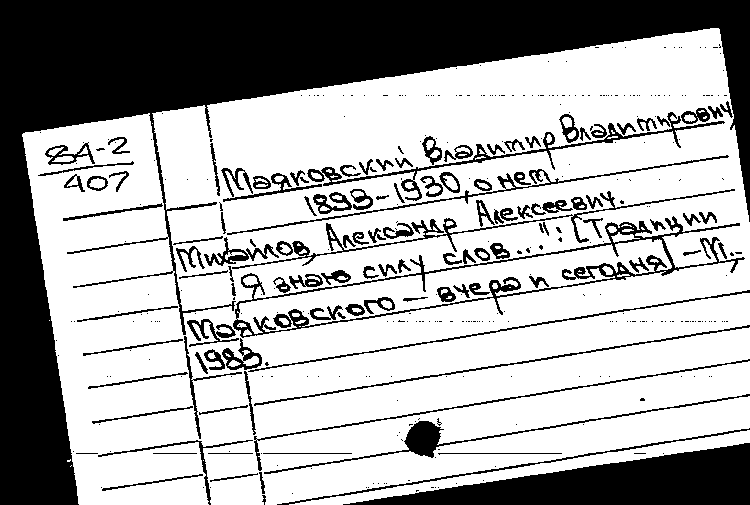 84-2
407
Маяковский, Владимир Владимирович,
1893-1930, о нем.
Михайлов, Александр Алексеевич.
Я знаю силу слов...": [Традиции
Маяковского - вчера и сегодня] -М.,
1983.